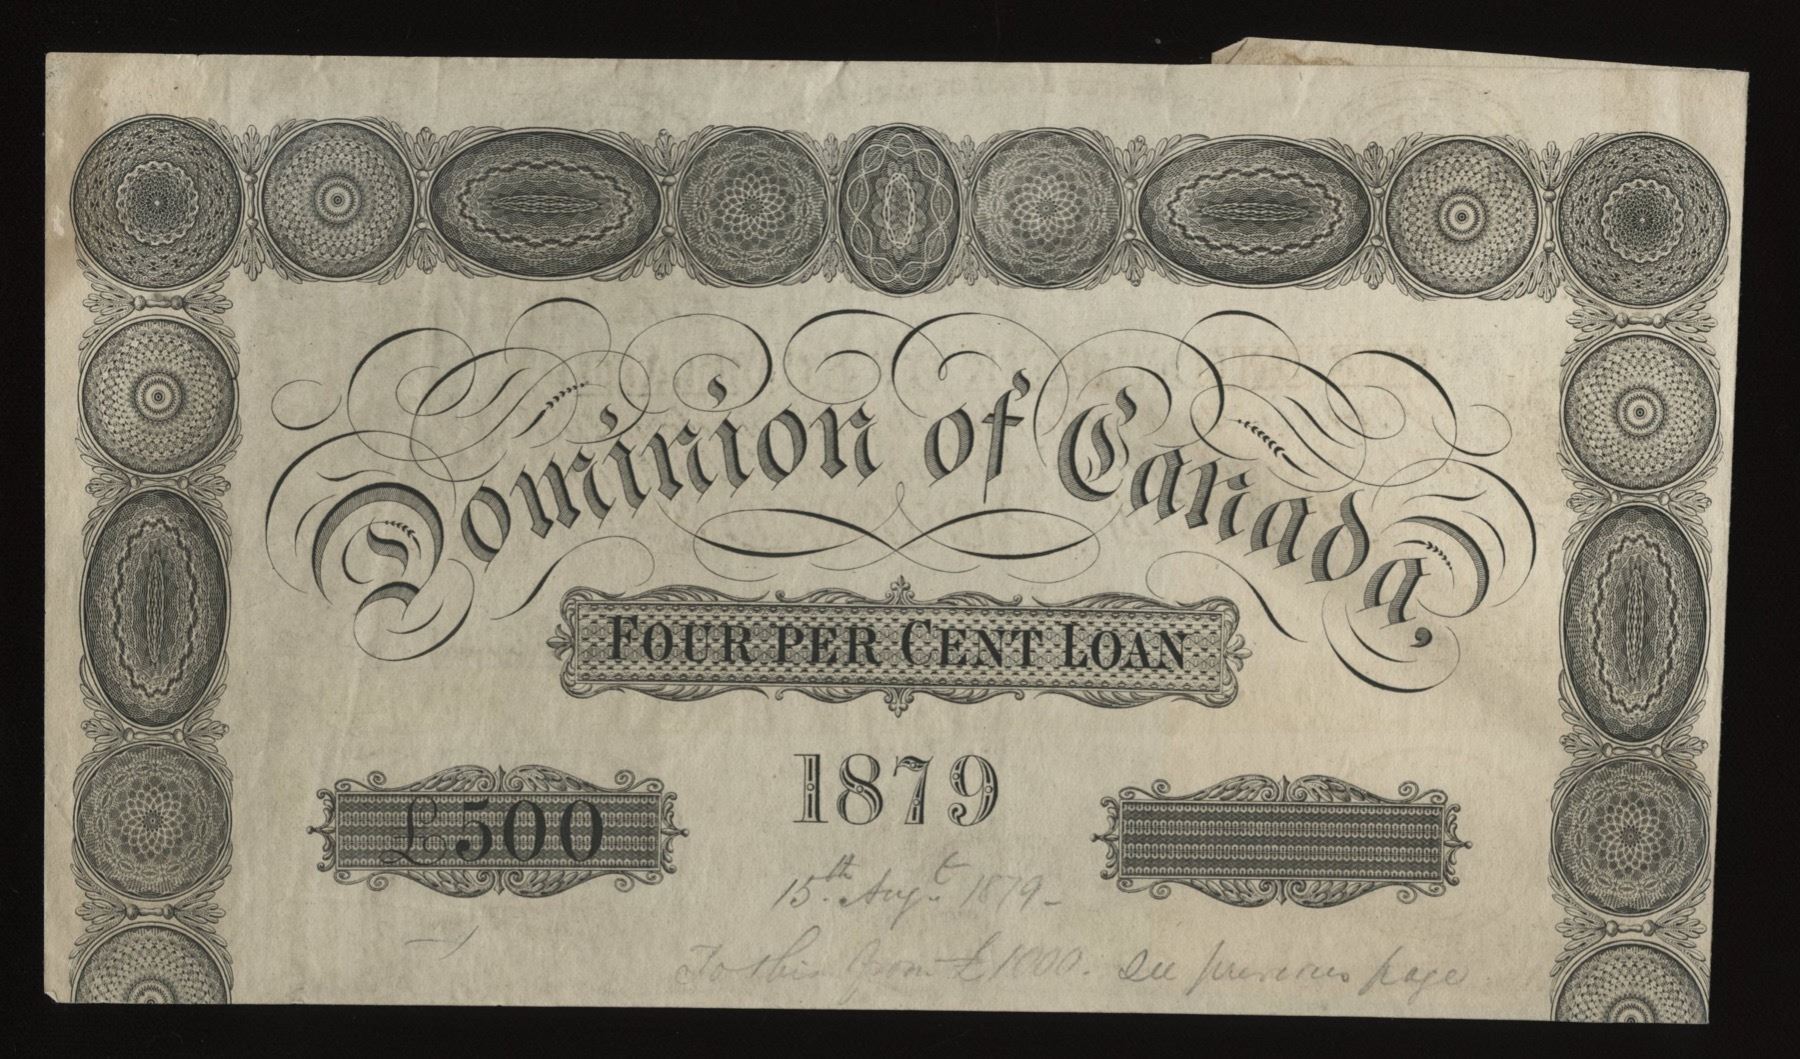 Dominion of Canada,
FOUR PER CENT LOAN
1879
£500
15th Augt 1879 -
To this from £1000. see previous page